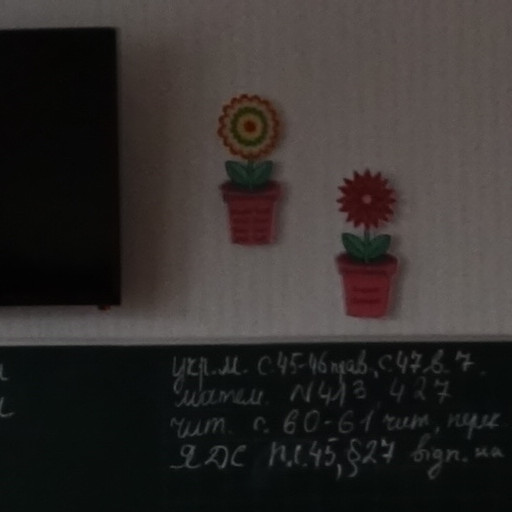 укр.м. с.45-46 прав., с.47, в. 7.
матем. №413, 427
чит. с. 60-61 чит., перек
ЯДС п.с.45, §27 відп. на